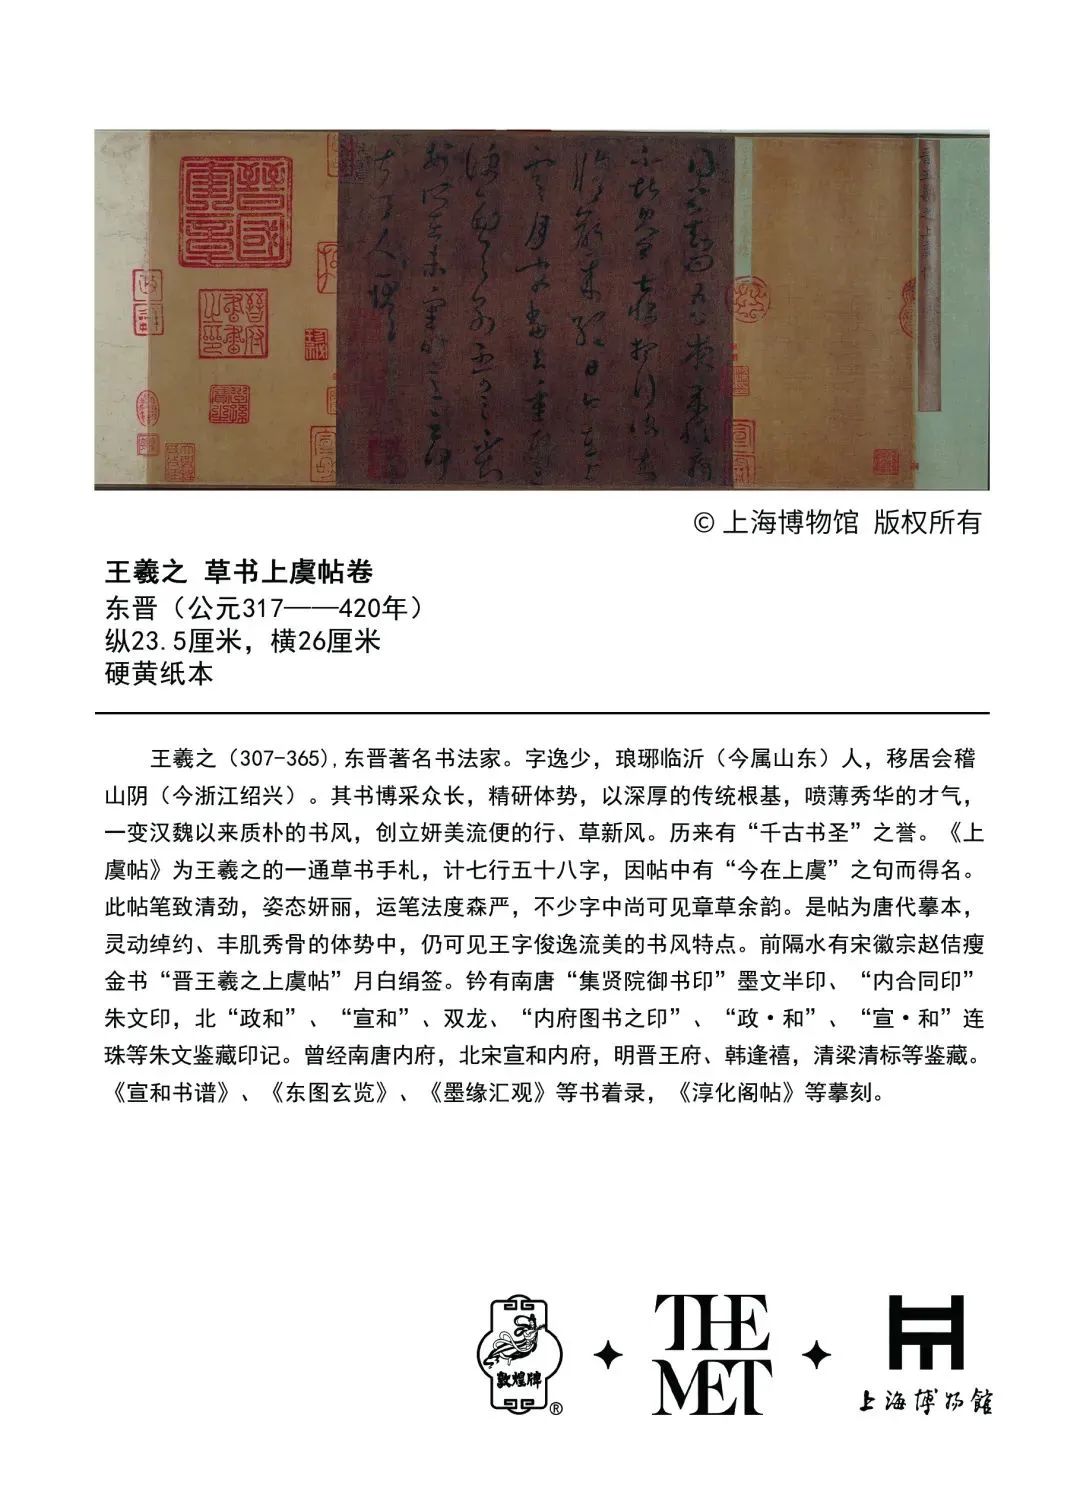 © 上海博物馆 版权所有
王羲之 草书上虞帖卷
东晋（公元317——420年）
纵23.5厘米，横26厘米
硬黄纸本
王羲之（307-365），东晋著名书法家。字逸少，琅琊临沂（今属山东）人，移居会稽
山阴（今浙江绍兴）。其书博采众长，精研体势，以深厚的传统根基，喷薄秀华的才气，
一变汉魏以来质朴的书风，创立妍美流便的行、草新风。历来有“千古书圣”之誉。《上
虞帖》为王羲之的一通草书手札，计七行五十八字，因帖中有“今在上虞”之句而得名。
此帖笔致清劲，姿态妍丽，运笔法度森严，不少字中尚可见章草余韵。是帖为唐代摹本，
灵动绰约、丰肌秀骨的体势中，仍可见王字俊逸流美的书风特点。前隔水有宋徽宗赵佶瘦
金书“晋王羲之上虞帖”月白绢签。钤有南唐“集贤院御书印”墨文半印、“内合同印”
朱文印，北“政和”、“宣和”、双龙、“内府图书之印”、“政·和”、“宣·和”连
珠等朱文鉴藏印记。曾经南唐内府，北宋宣和内府，明晋王府、韩逢禧，清梁清标等鉴藏。
《宣和书谱》、《东图玄览》、《墨缘汇观》等书着录，《淳化阁帖》等摹刻。
敦煌牌®
THE
MET
上海博物馆